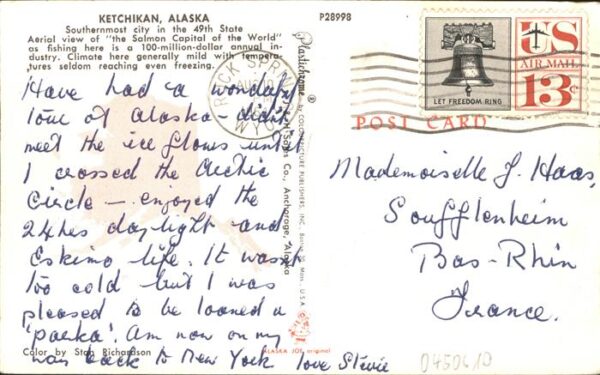 KETCHIKAN, ALASKA
Southernmost city in the 49th State
Aerial view of "the Salmon Capital of the World"
as fishing here is a 100-million-dollar annual in-
dustry. Climate here generally mild with tempera-
tures seldom reaching even freezing.
Have had a wonderful
tour of Alaska didn't
meet the ice flows until
I crossed the Arctic
Circle — enjoyed the
24hrs daylight and
Eskimo life. It wasn't
too cold but I was
pleased to be loaned a
'parka'. Am now on my
way back to New York love Stevie
Color by Stan Richardson
P28998
Plastichrome ®
by COLOURPICTURE PUBLISHERS, INC., Boston 30, Mass., U.S.A.
Sales Co., Anchorage, Alaska
ALASKA JOE original
ROCK SPRI
AUG
WYO
LET FREEDOM RING
US
AIR MAIL
13¢
POST CARD
Mademoiselle J. Haas,
Soufflenheim
Bas-Rhin
France.
0450610